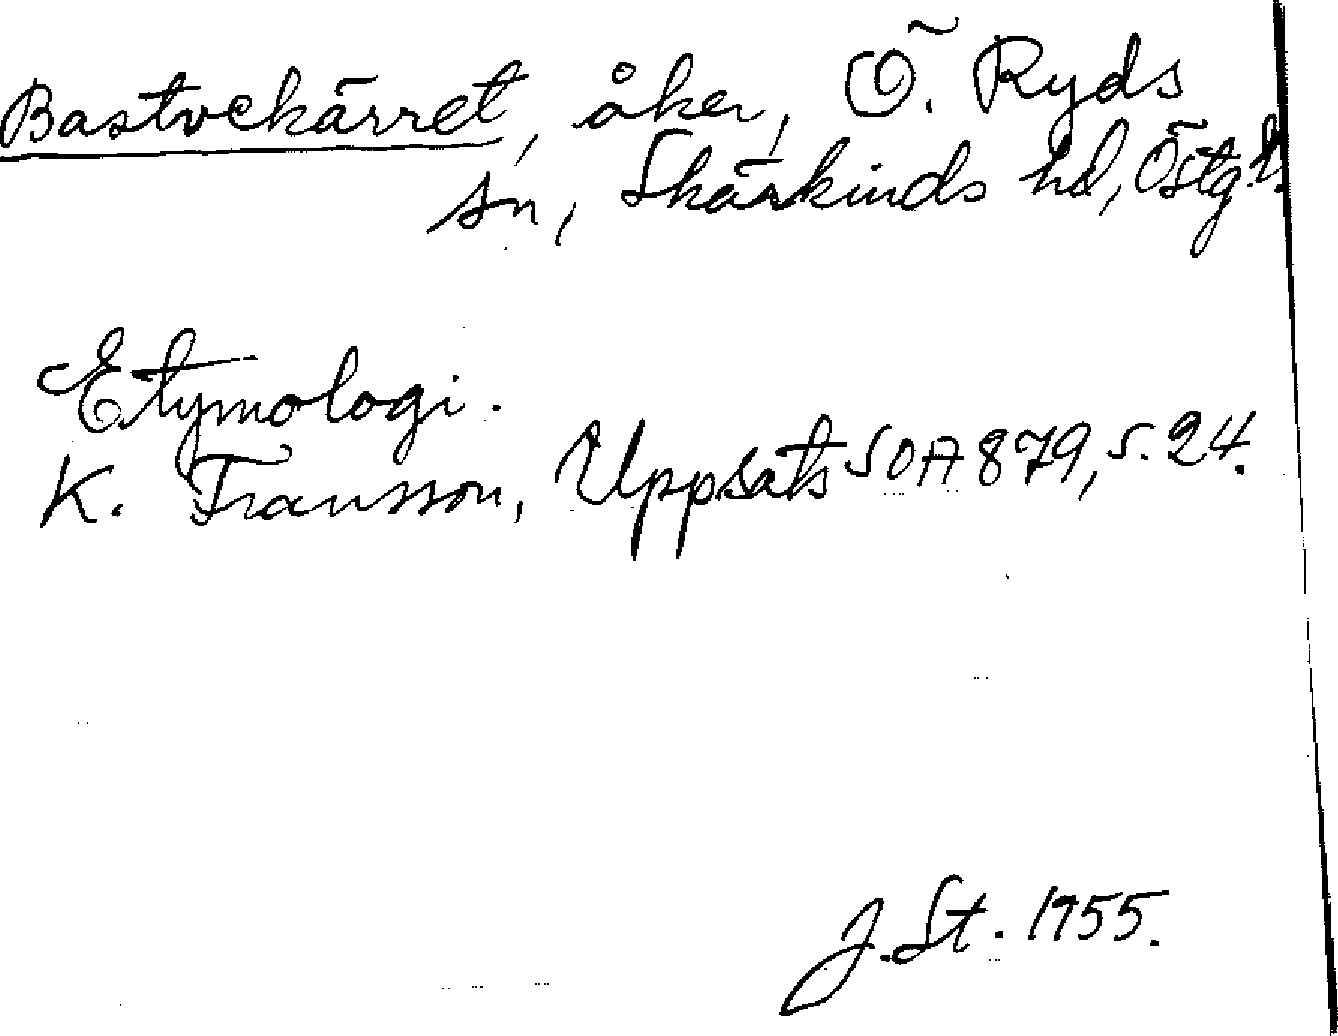 Bastvekärret, åker, Ö. Ryds
sn, Skärkinds hd, Östg.l.
Etymologi.
K. Fransson, Uppsats SOA 879, s. 24.
J. St. 1955.